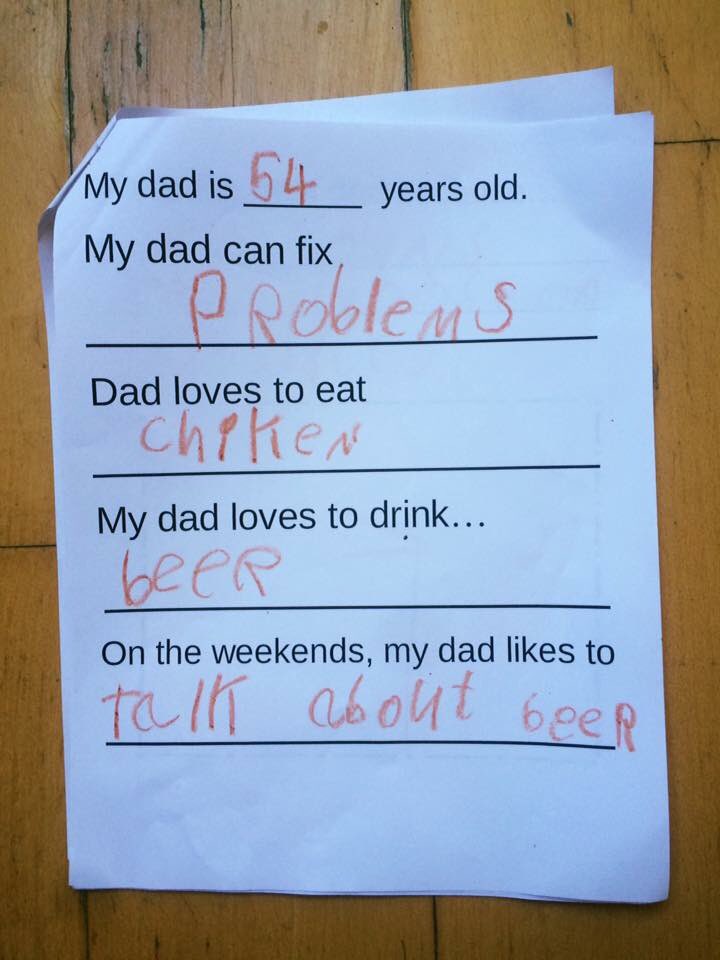 My dad is 54 years old.
My dad can fix
PRoblems
Dad loves to eat
chiken
My dad loves to drink…
beeR
On the weekends, my dad likes to
talk about beeR